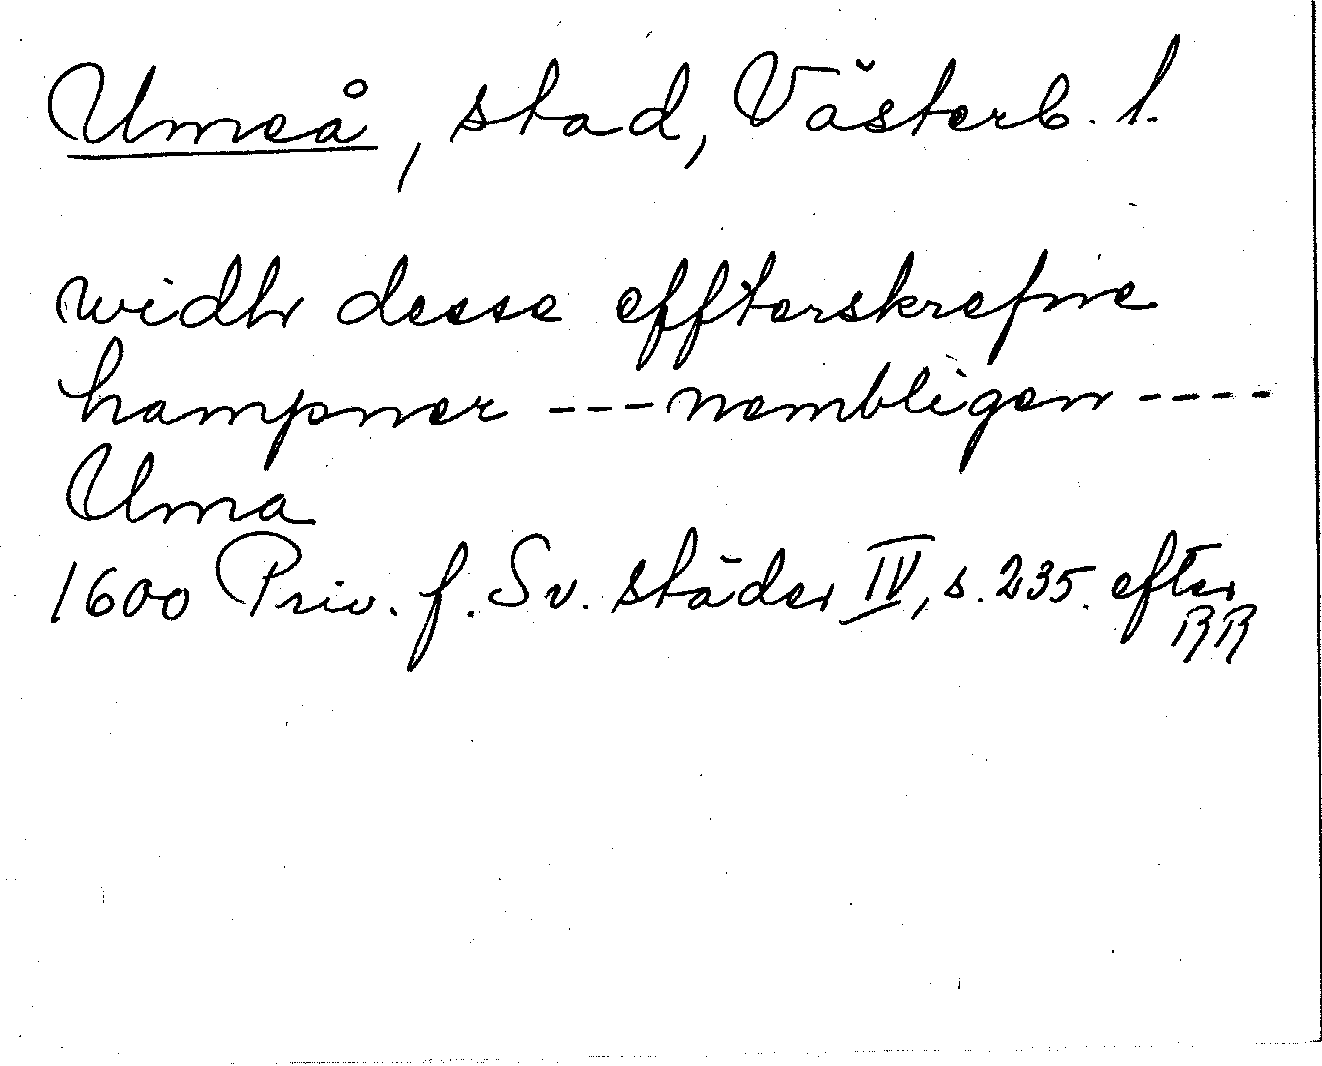 Umeå, stad, Västerb. l.
widh desse effterskrefne
hampner --- nembligen ----
Uma
1600 Priv. f. Sv. städer IV, s. 235. efter
RR